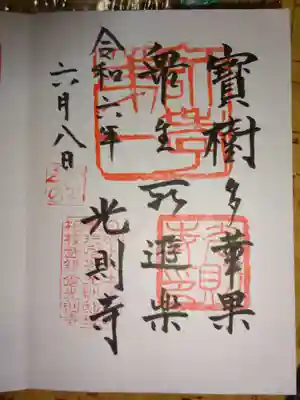 寶樹多華果
衆生所遊樂
光則寺
令和六年
六月八日